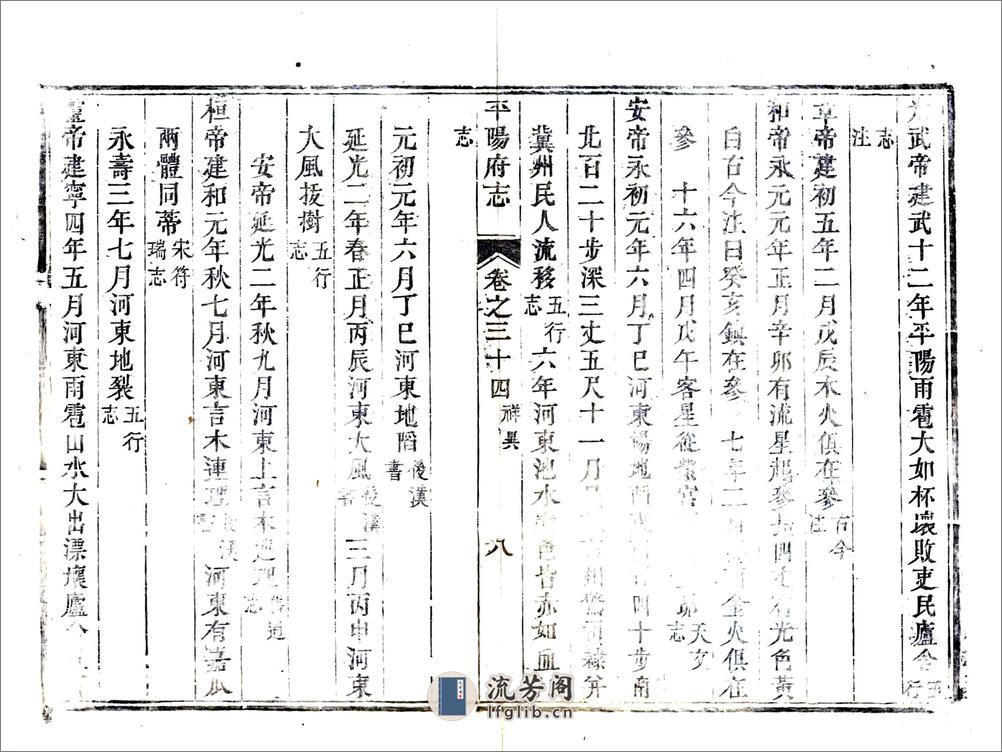 光武帝建武十二年平陽雨雹大如杯壞敗吏民廬舍五行
志注
章帝建初五年二月戊辰木火俱在參古今注
和帝永元元年正月辛卯有流星起參 四丈有光色黃
白古今注曰癸亥鎮在參 七年二月 金火俱在
參 十六年四月戊午客星從紫宮 昴天文志
安帝永初元年六月丁巳河東陽地 四十步南
北百二十步深三丈五尺十一月 司隸并
冀州民人流移五行志 六年河東池水 色皆赤如血
志
平陽府志 卷之三十四 祥異 八
元初元年六月丁巳河東地陷後漢書
延光二年春正月丙辰河東大風後漢書 三月丙申河東
大風拔樹五行志
安帝延光二年秋九月河東上言木連理 通志
桓帝建和元年秋七月河東言木連理後漢書 河東有嘉瓜
兩體同蒂宋符瑞志
永壽三年七月河東地裂五行志
靈帝建寧四年五月河東雨雹山水大出漂壞廬舍五
流芳閣
lfglib.cn